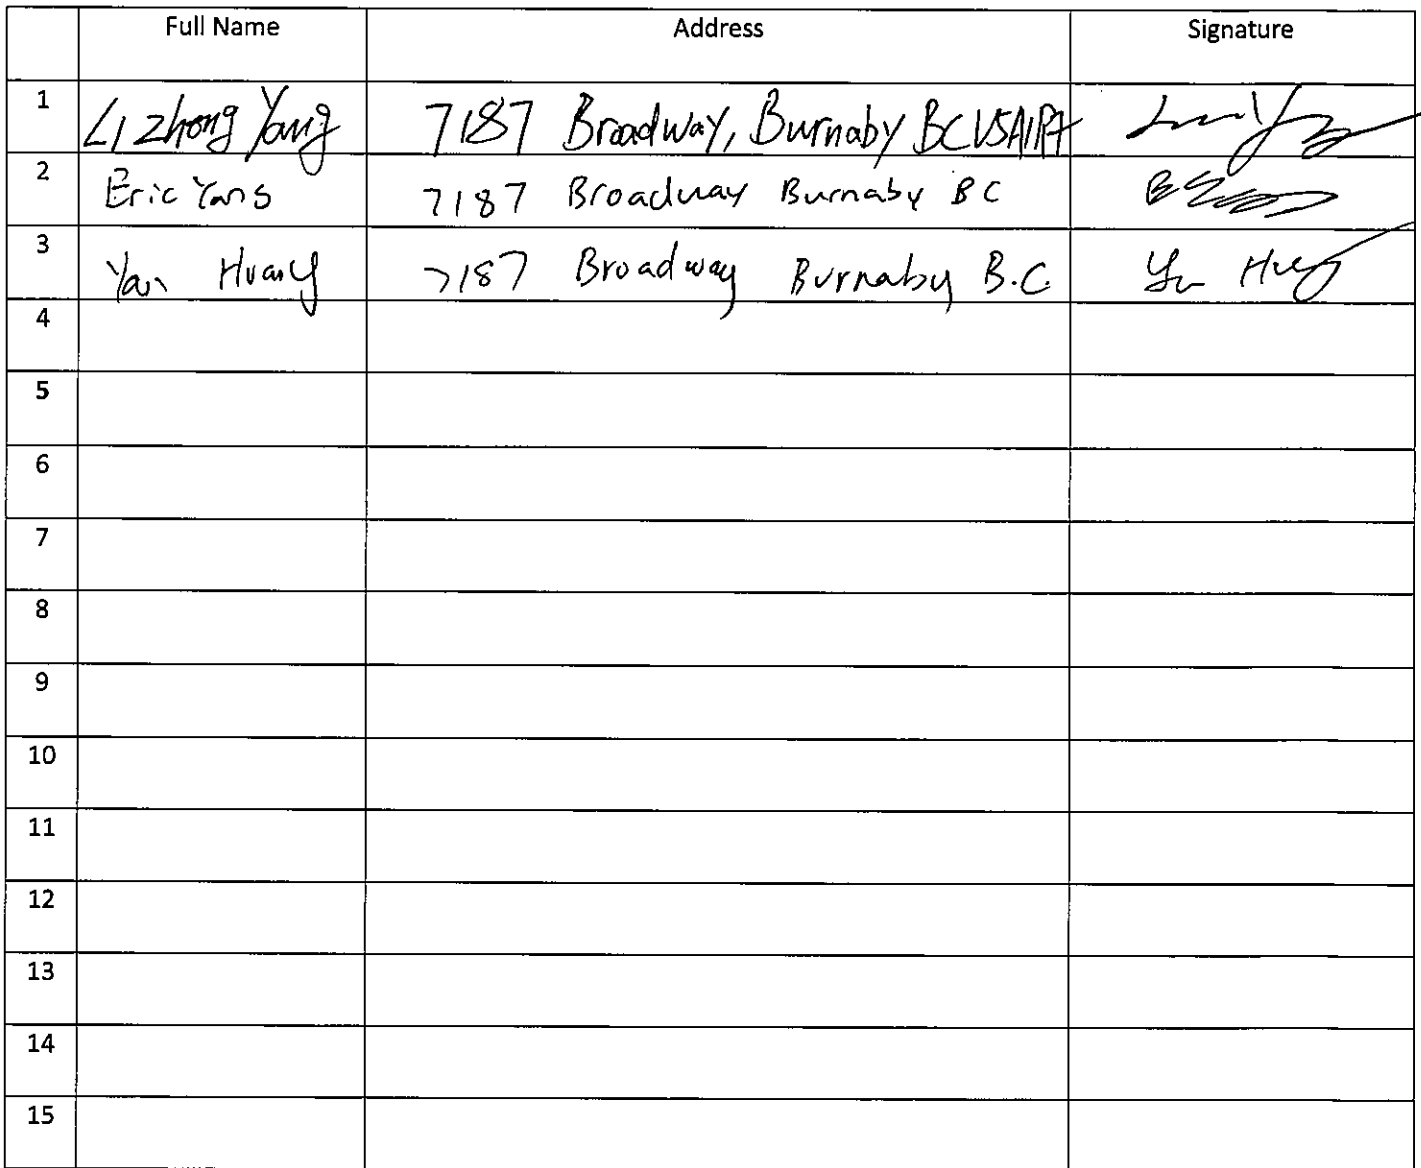 Full Name Address Signature
1 Li Zhong Yang 7187 Broadway, Burnaby BC V5A1R7
2 Eric Yang 7187 Broadway Burnaby BC
3 Yan Huang 7187 Broadway Burnaby B.C. Yan Huang
4
5
6
7
8
9
10
11
12
13
14
15